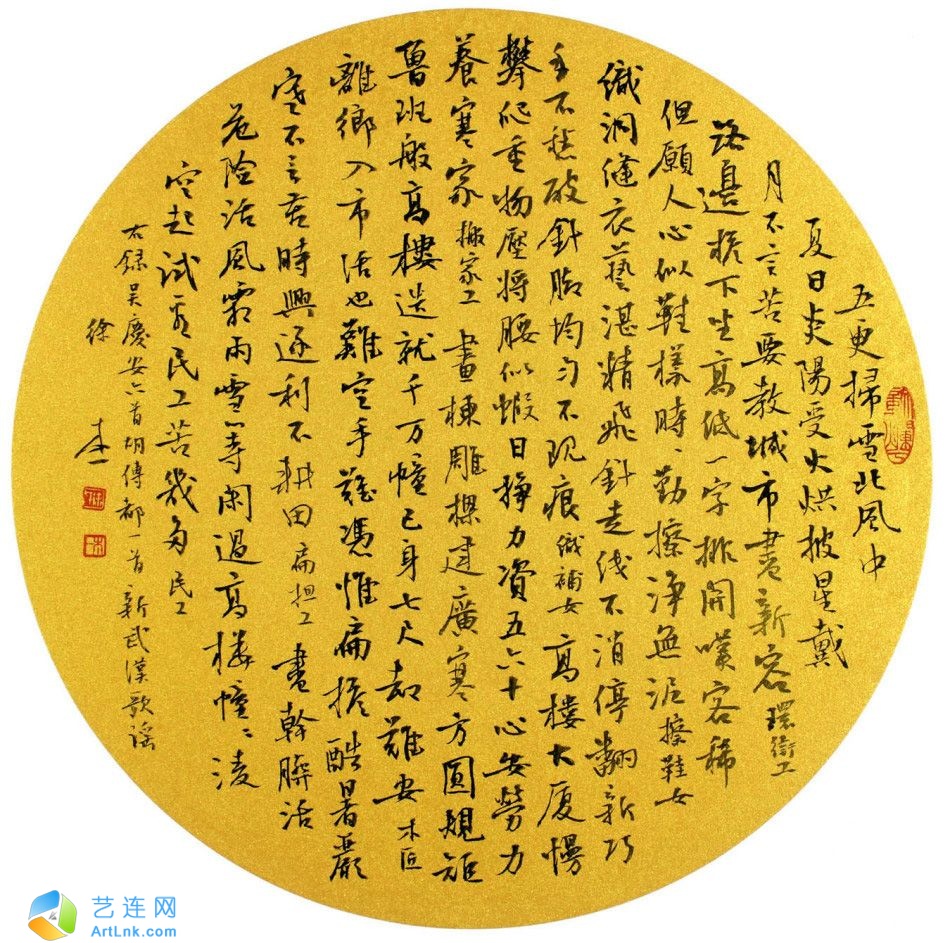 五更掃雪北風中
夏日炎陽受火烘披星戴
月不言苦要教城市盡新容環衛工
路邊檐下坐高低一字排開嘆客稀
但願人心似鞋樣時時勤擦淨無泥擦鞋女
織洞縫衣藝湛精飛針走线不消停翻新巧
手不愁破針脚均匀不现痕織補女高樓大厦慢
攀爬重物壓將腰似蝦日掙力資五六十心安勞力
養寒家搬家工畫棟雕樑建廣寒方圓規矩
魯班般高樓造就千万幢己身七尺却難安木匠
離鄉入市活也難空手誰憑惟扁担酷暑嚴
寒不言苦時興逐利不耕田扁担工盡幹髒活
危險活風霜雨雪等闲過高樓幢幢凌
空起试看民工苦幾多民工
右錄吳慶安六首胡傳都一首新武漢歌谣
徐
艺连网
ArtLnk.com